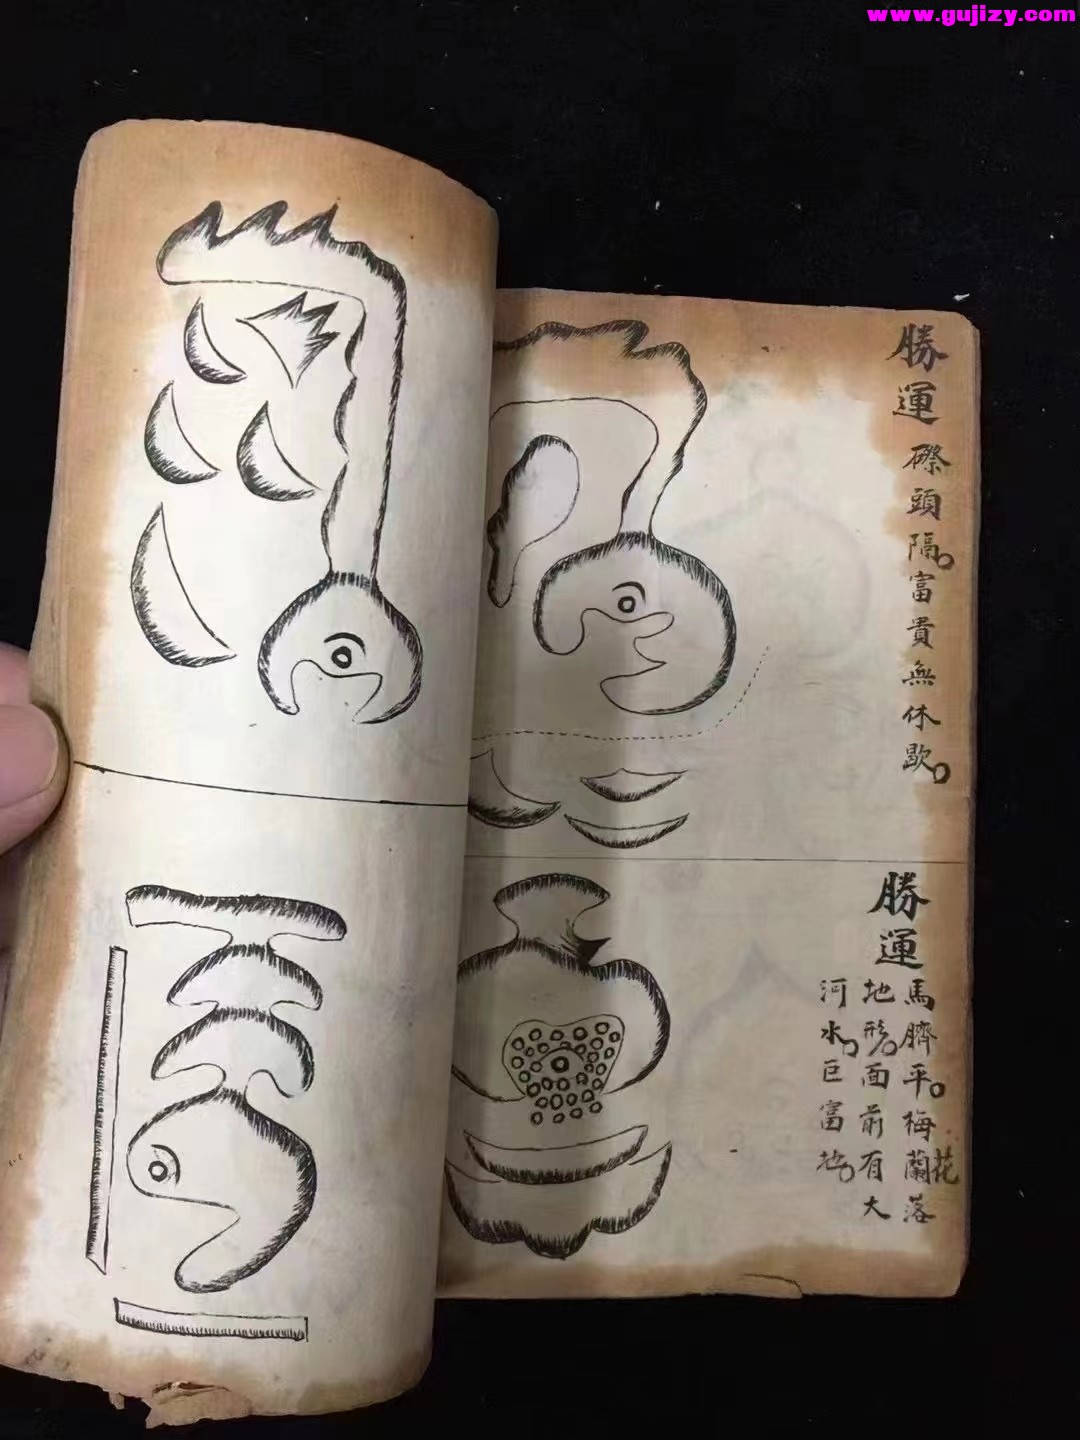 www.gujizy.com
勝運磜頭隔。富貴無休歇。
勝運馬臍平。梅蘭花落
地形。面前有大
河水。巨富地。